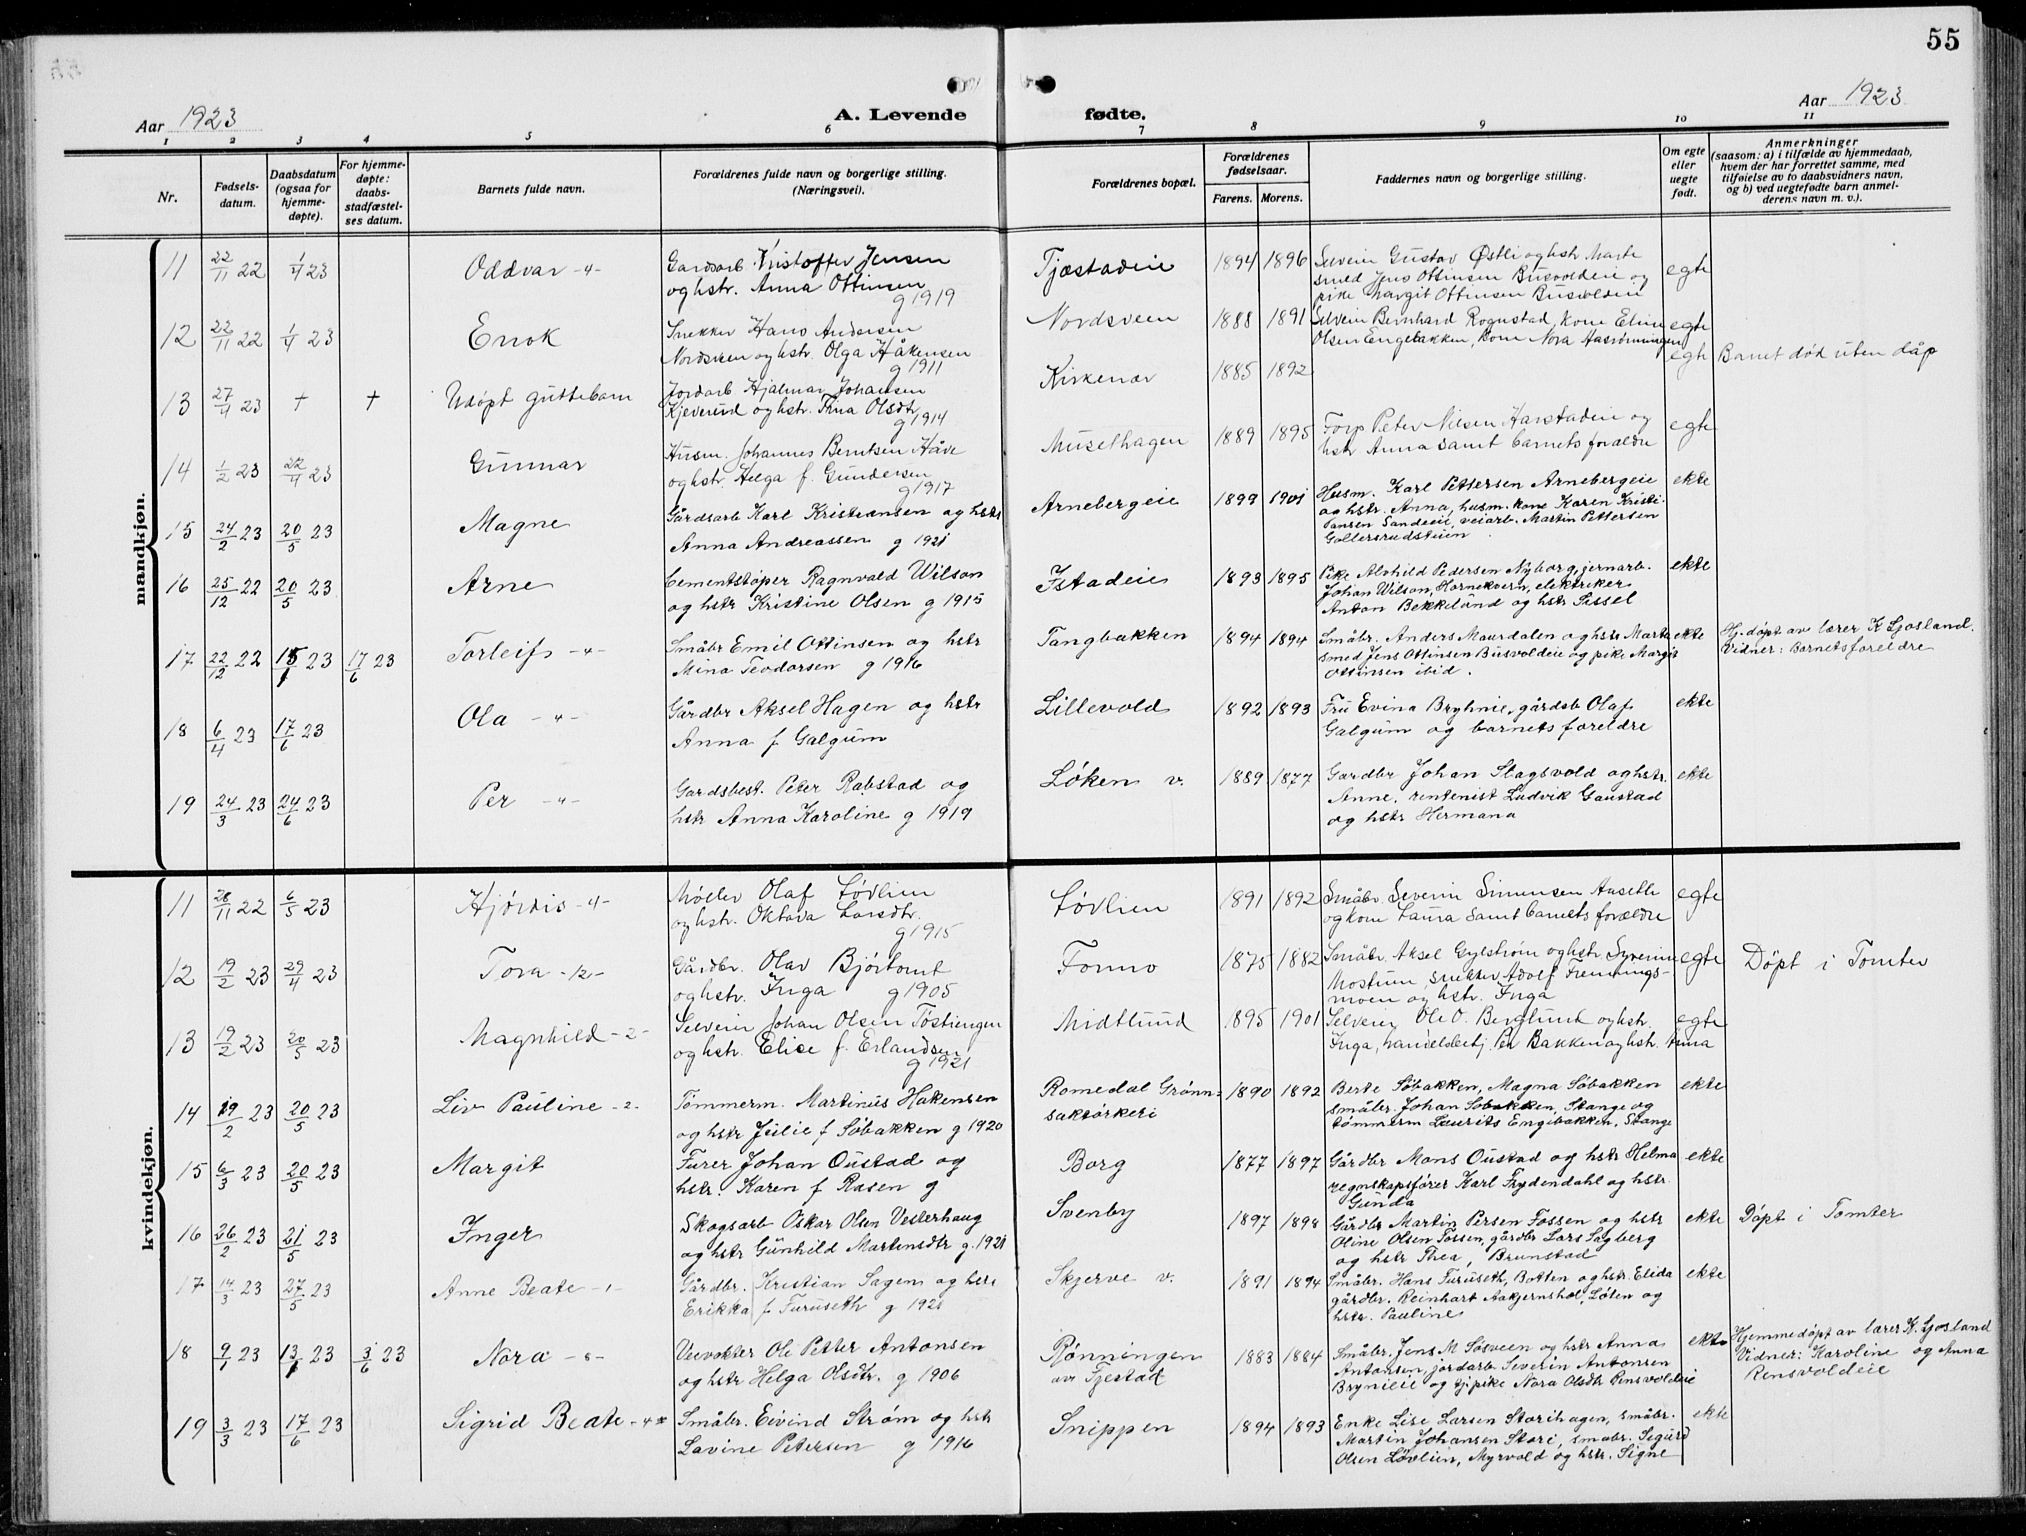 55
Aar 1923
A. Levende
fødte.
Aar 1923
1 2 3 4 5 6 7 8 9 10 11
Nr.
Fødsels-
datum.
Daabsdatum
(ogsaa for
hjemme-
døpte).
For hjemme-
døpte:
daabs-
stadfæstel-
ses datum.
Barnets fulde navn.
Forældrenes fulde navn og borgerlige stilling.
(Næringsvei).
Forældrenes bopæl.
Forældrenes
fødselsaar.
Farens. Morens.
Faddernes navn og borgerlige stilling.
Om egte
eller
uegte
født.
Anmerkninger
(saasom: a) i tilfælde av hjemmedaab,
hvem der har forrettet samme, med
tilføielse av to daabsvidners navn,
og b) ved uegtefødte barn anmel-
derens navn m. v.).
mandkjøn.
11 22/11 22 1/4 23 Oddvar -4- Gardsarb Kristoffer Jensen Tjæstadeie 1894 1896 Selveier Gustav Østli og hstr Marte egte
og hstr. Anna Ottinsen smed Jens Ottinsen Busvoldeie og
g 1919 pike Margit Ottinsen Busvoldeie
12 22/11 22 1/4 23 Enok Snekker Hans Andersen Nordsveen 1888 1891 Selveier Bernhard Rognstad, kone Eline egte
Nordsveen og hstr. Olga Håkensen Olsen Engebakken, kone Nora Aasrønningen
g 1911
13 27/4 23 + + Udøpt guttebarn Jordarb Hjalmar Johansen Kirkenær 1885 1892 egte Barnet død uten dåp
Kjeverud og hstr. Tina Olsdtr
g 1914
14 1/2 23 22/4 23 Gunnar Husm. Johannes Berntsen Håve Muselhagen 1889 1895 Forp Peter Nilsen Harstadeie og egte
og hstr Helga f. Gundersen hstr Anna samt barnets forældre
g 1917
15 24/2 23 20/5 23 Magne Gårdsarb Karl Kristiansen og hstr Arnebergeie 1899 1901 Husm. Karl Pettersen Arnebergeie ekte
Anna Andreassen g 1921 og hstr. Anna, husm. kone Karen Kristi-
ansen Sandeeie, veiarb. Martin Pettersen
Gollersrudstuen.
16 25/12 22 20/5 23 Arne Cementstøper Ragnvald Wilson Ystadeie 1893 1895 Pike Alvhild Pedersen Nyborg, jernarb. ekte
og hstr Kristine Olsen g 1915 Johan Wilson, Hornekvern, elektriker
Anton Bekkelund og hstr Sissel
17 22/12 22 15/1 23 17/6 23 Torleif -4- Småbr Emil Ottinsen og hstr Tangbakken 1894 1894 Småbr. Anders Maurdalen og hstr Marte ekte Hj.døpt av lærer K Ljosland.
Mina Teodorsen g 1916 smed Jens Ottinsen Busvoldeie og pike Margit Vidner: Barnets foreldre
Ottinsen ibid.
18 6/4 23 17/6 23 Ola -4- Gårdbr Aksel Hagen og hstr Lillevold 1892 1893 Fru Evina Bryhnie, gårdsb Olaf ekte
Anna f Galgum Galgum og barnets foreldre
19 24/3 23 24/6 23 Per -4- Gardsbest. Peter Rabstad og Løken v. 1889 1877 Gardbr Johan Stagsvold og hstr. ekte
hstr Anna Karoline g 1919 Anne, rentenist Ludvik Gaustad
og hstr Hermana
kvindekjøn.
11 28/11 22 6/5 23 Hjørdis -4- Møller Olaf Løvlien Løvlien 1891 1892 Småbr. Severin Simensen Aaseth egte
og hstr. Oktava Larsdtr. og kone Laura samt barnets forældre
g 1915
12 19/2 23 29/4 23 Tora -12- Gårdbr. Olav Bjørtomt Fonno 1875 1882 Småbr. Aksel Gylstrøm og hstr Syverine egte Døpt i Tomter
og hstr. Inga g 1905 Mostuen, snekker Adolf Flemmings-
moen og hstr. Inga
13 19/2 23 20/5 23 Magnhild -2- Selveier Johan Olsen Tøstiengen Midtlund 1895 1901 Selveier Ole O. Berglund og hstr. egte
og hstr. Elise f. Erlandsen Inga, handelsbetj. Per Bakken og hstr. Anna
g 1921
14 19/2 23 20/5 23 Liv Pauline -2- Tømmerm. Martinus Hakensen Romedal Grønn- 1890 1892 Berte Søbakken, Magna Søbakken ekte
og hstr Julie f Søbakken g 1920 saktørkeri småbr. Johan Søbakken, Stange og
tømmerm Laurits Engebakken, Stange
15 6/3 23 20/5 23 Margit Furer Johan Oustad og Borg 1877 1897 Gårdbr Mons Oustad og hstr Helma ekte
hstr. Karen f Rasen g regnskapsfører Karl Frydendahl og hstr.
Gunda
16 26/2 23 21/5 23 Inger Skogsarb Oskar Olsen Vesterhaug Svenby 1897 1898 Gårdbr Martin Persen Fossen og hstr ekte Døpt i Tomter
og hstr Gunhild Martensdtr g. 1921 Oline Olsen Fossen, gårdbr Lars Sagberg
og hstr Thea, Brunstad
17 14/3 23 27/5 23 Anne Beate -1- Gårdbr. Kristian Sagen og hstr Skjerve v. 1891 1894 Småbr. Hans Furuseth, Botten og hstr. Elida ekte
Erikka f Furuseth g 1921 gårdbr. Reinhart Aakjernshol, Løten og
hstr. Pauline
18 9/1 23 13/1 23 3/6 23 Nora -8- Veivokter Ole Petter Antonsen Rønningen 1883 1884 Småbr. Jens M Søsveen og hstr Anna ekte Hjemmedøpt av lærer K. Ljosland
og hstr Helga Olsdtr. g 1906 av Tjestad Antonsen, jordarb Severin Antonsen Vidner: Karoline og Anna
Brynieie og tj.pike Nora Olsdtr Rensvoldeie Rensvoldeie
19 3/3 23 17/6 23 Sigrid Beate -4- Småbr. Eivind Strøm og hstr Snippen 1894 1893 Enke Lise Larsen Storihagen, småbr. ekte
Lavine Petersen g 1916 Martin Johansen Stori, småbr. Sigurd
Olsen Løvlien, Myrvold og hstr. Signe